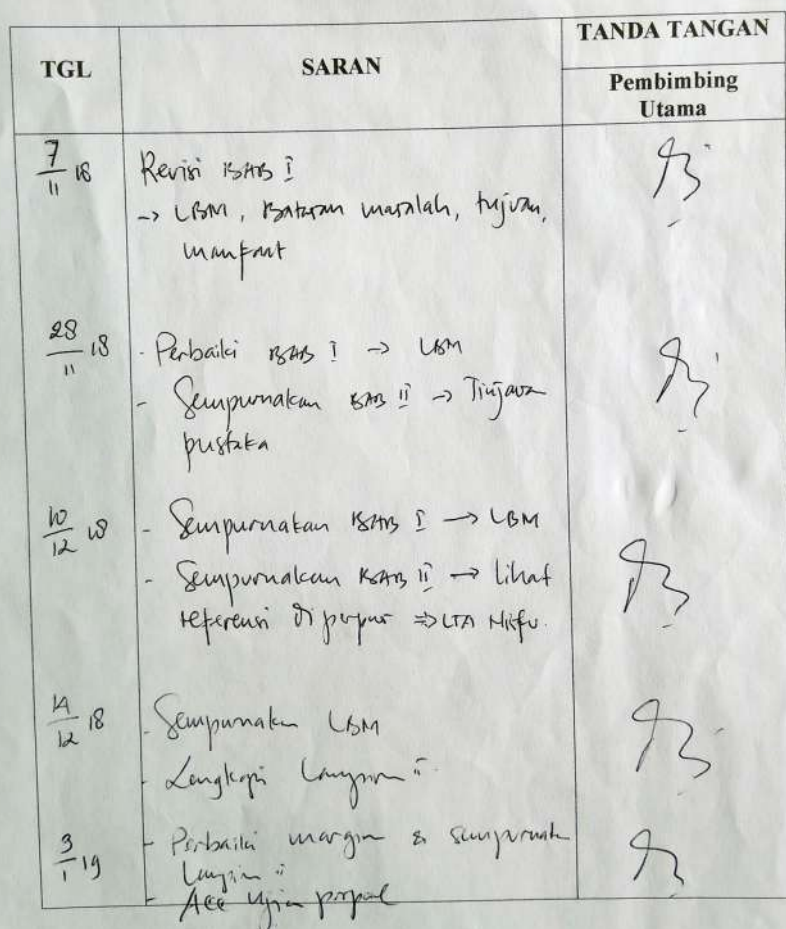 TGL SARAN TANDA TANGAN
Pembimbing
Utama
7/11 18 Revisi BAB I
-> LBM, Batasan masalah, tujuan,
manfaat
28/11 18 - Perbaiki BAB I -> LBM
- Sempurnakan BAB II -> Tinjauan
pustaka
10/12 18 - Sempurnakan BAB I -> LBM
- Sempurnakan BAB II -> lihat
referensi di => LTA
14/12 18 - Sempurnakan LBM
- Lengkapi
3/1 19 - Perbaiki margin & sempurnakan
- Acc Ujian proposal